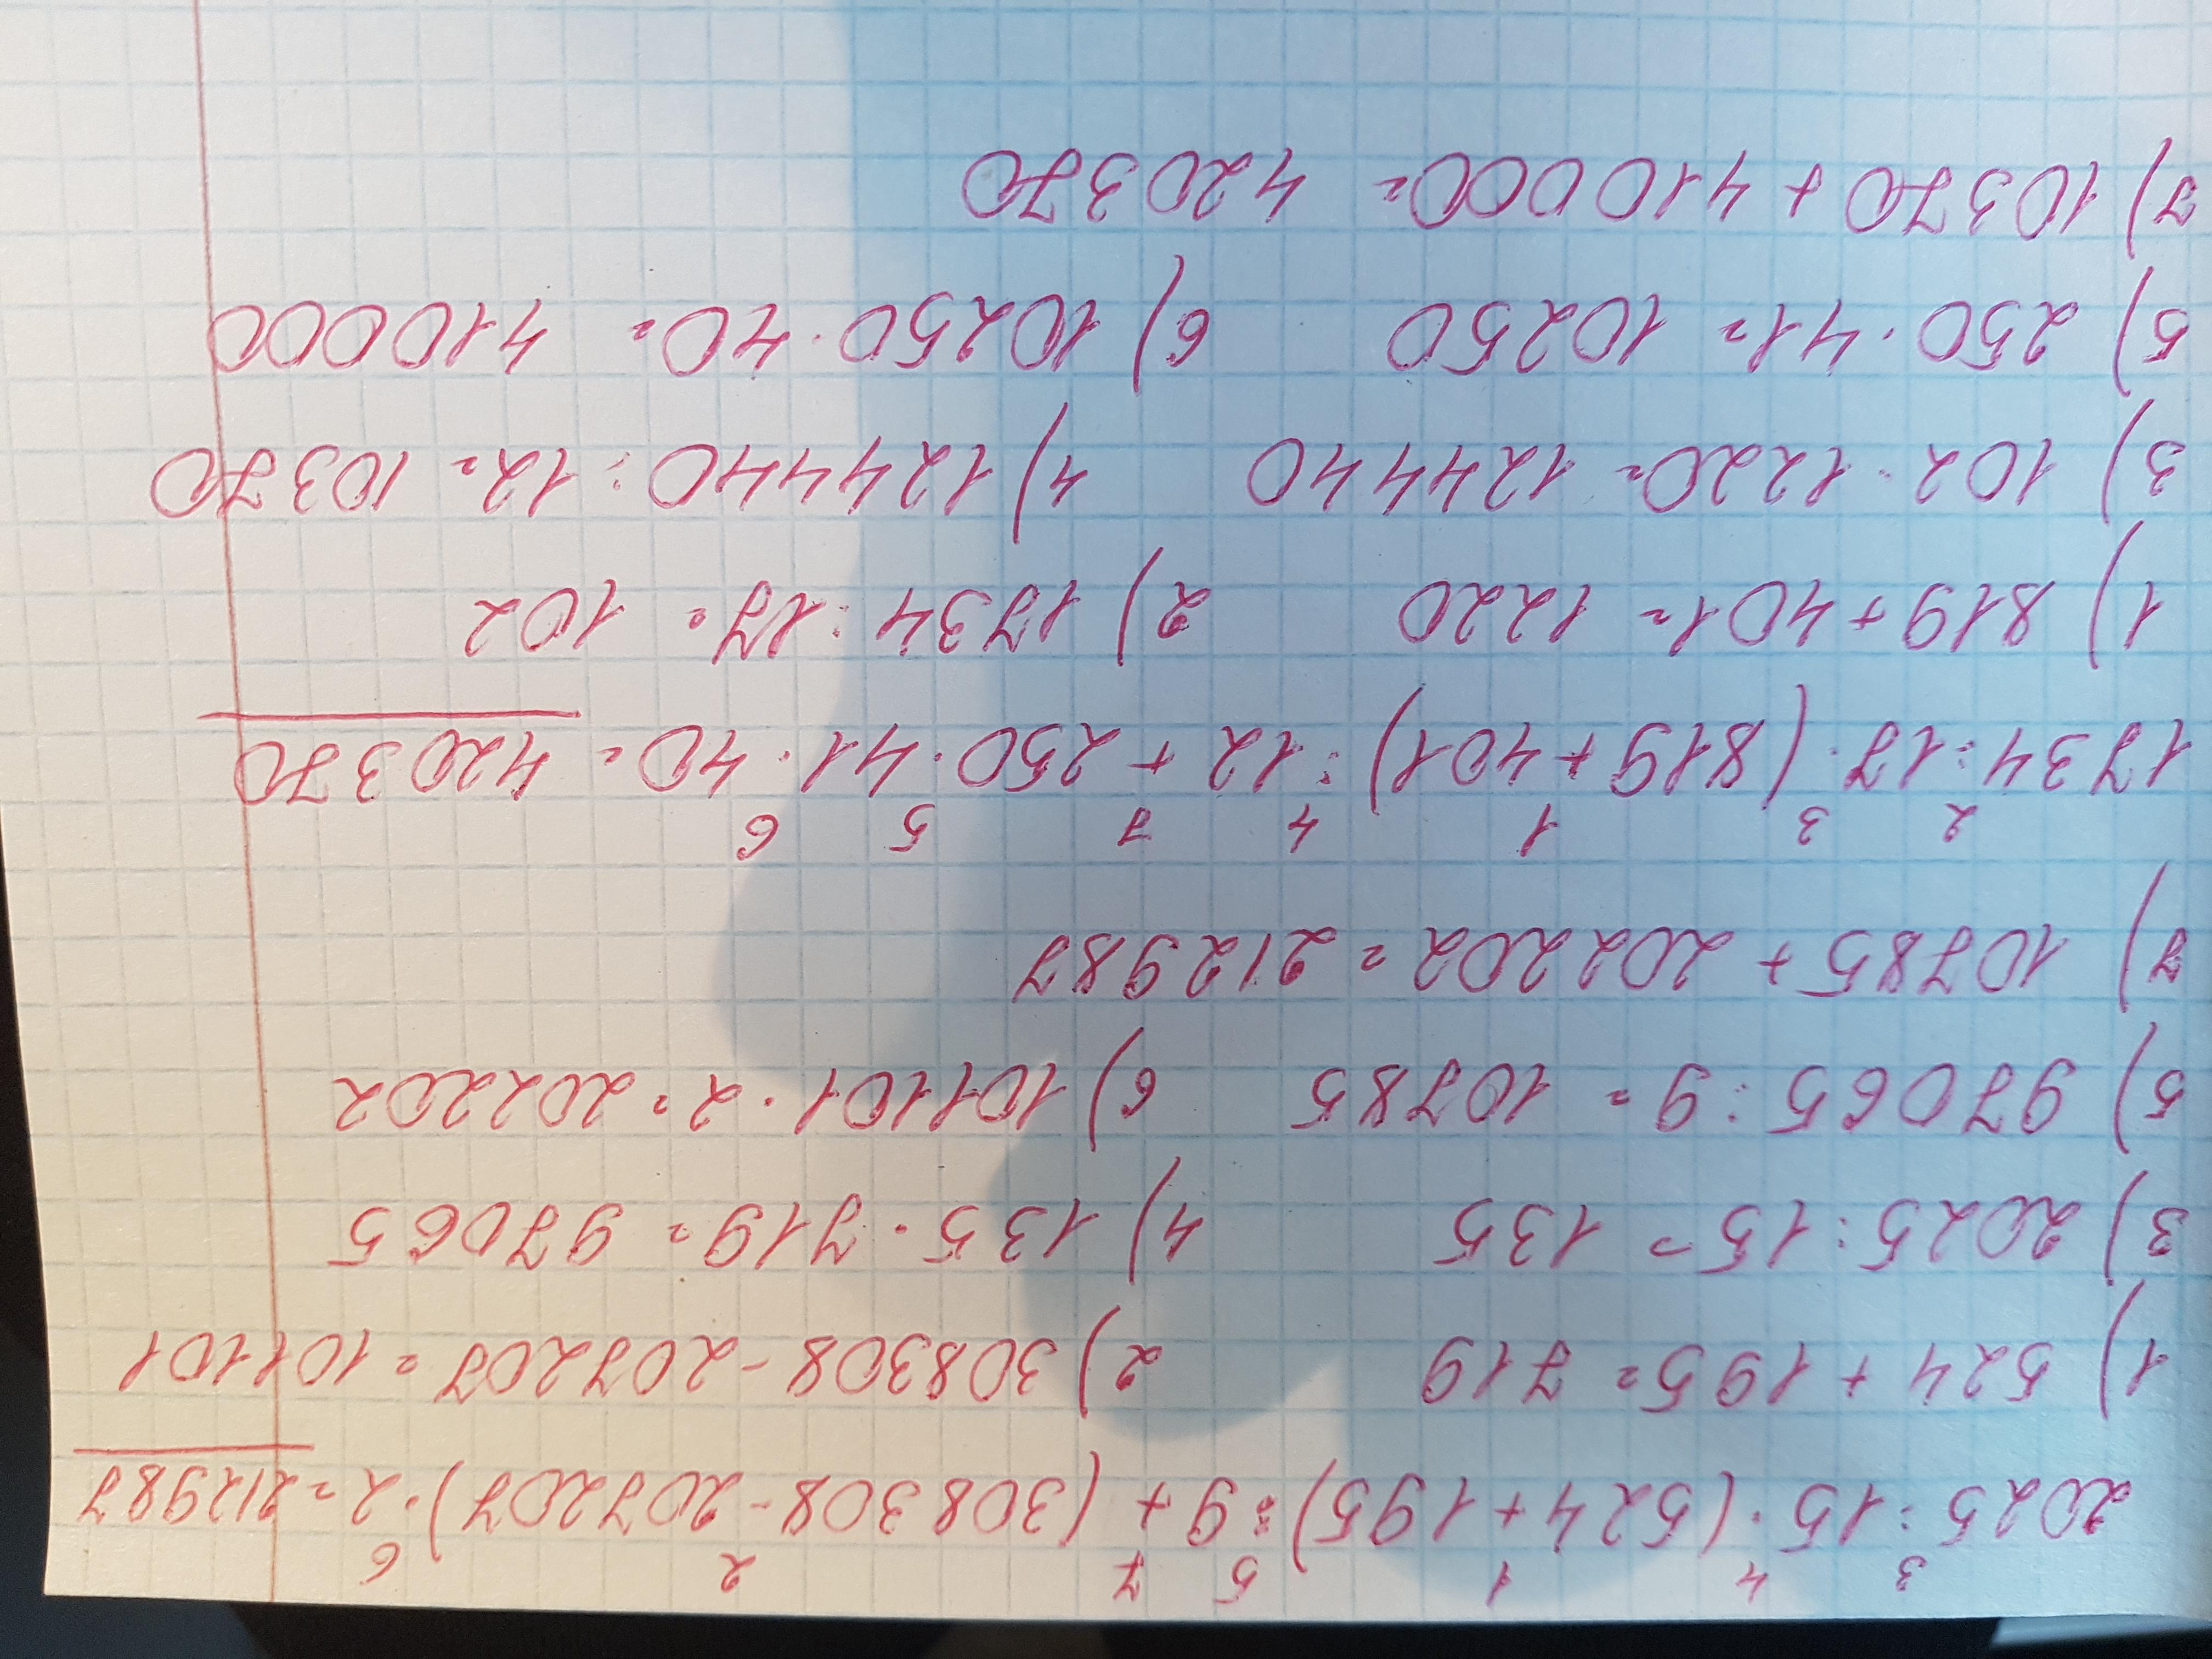 3 4 1 5 7 2 6
2025 : 15 · (524 + 195) : 9 + (308308 - 207207) · 2 = 212987
1) 524 + 195 = 719 2) 308308 - 207207 = 101101
3) 2025 : 15 = 135 4) 135 · 719 = 97065
5) 97065 : 9 = 10785 6) 101101 · 2 = 202202
7) 10785 + 202202 = 212987
2 3 1 4 7 5 6
1734 : 17 · (819 + 401) : 12 + 250 · 41 · 40 = 420370
1) 819 + 401 = 1220 2) 1734 : 17 = 102
3) 102 · 1220 = 124440 4) 124440 : 12 = 10370
5) 250 · 41 = 10250 6) 10250 · 40 = 410000
7) 10370 + 410000 = 420370